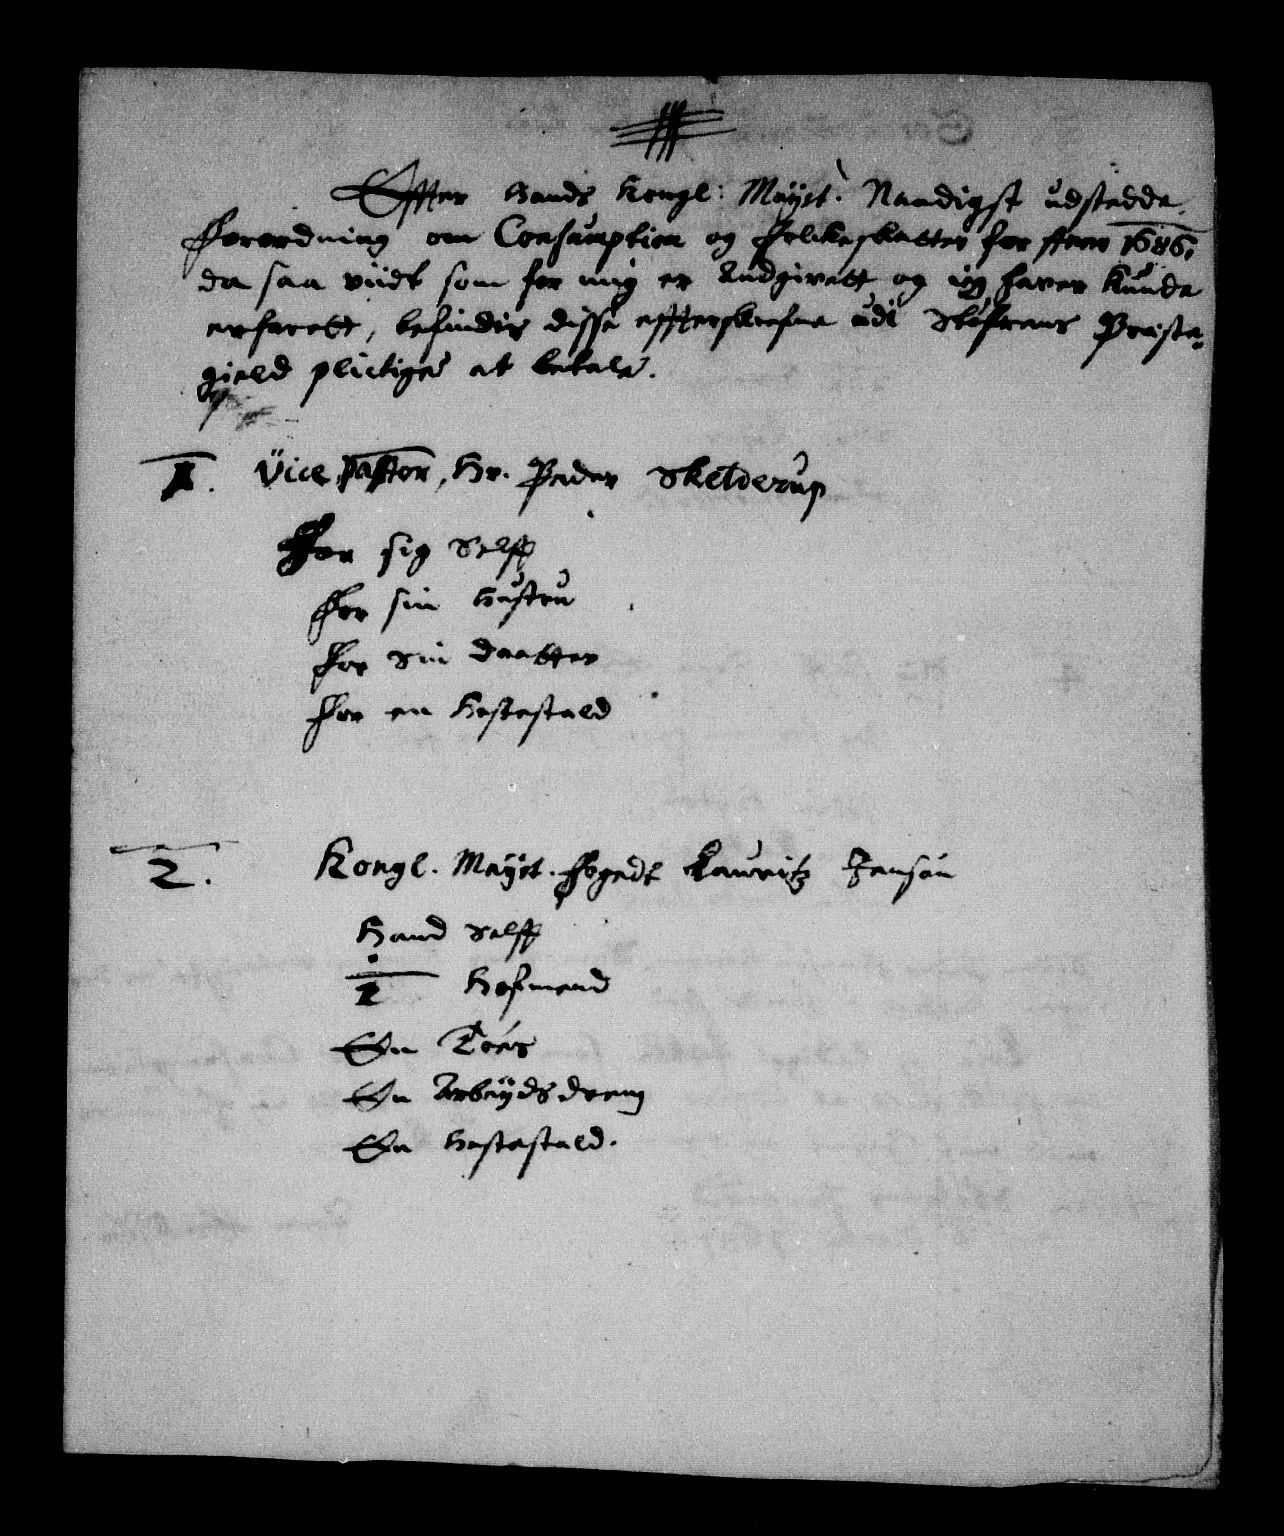 Effter Hands Kongl: Mayst. Naadigst udstedde
Forordning om Consumption og Folkeskatter for Aar 1686,
da saa viidt som for mig er Andgivett og ieg haver kunde
erfarett, befindis disse effterskrefne udi Præste-
gield plictige at betale.
1. Vice Pastor, Hr. Peder Skelderup
For sig Selff
For sin Hustru
For sin daatter
For en Hestestald
2. Kongl. Mayst. Fogedt Lauritz Jensøn
Hand Selff
1 Hofmand
En Toës
En Arbeyds dreng
En Hestestald.